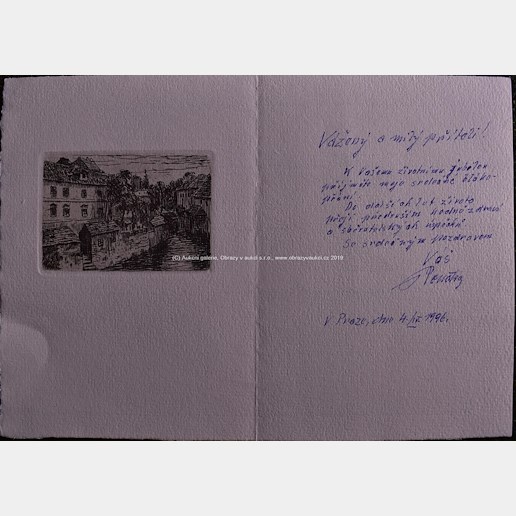 (C) Aukční galerie, Obrazy v aukci s.r.o., www.obrazyvaukci.cz 2018
Vážený a milý příteli!
K Vašemu životnímu jubileu
přijměte moje srdečné blaho-
přání.
Do dalších let života
přeji především hodně zdraví
a sběratelských úspěchů
Se srdečným pozdravem
Váš
V Praze, dne 1996.